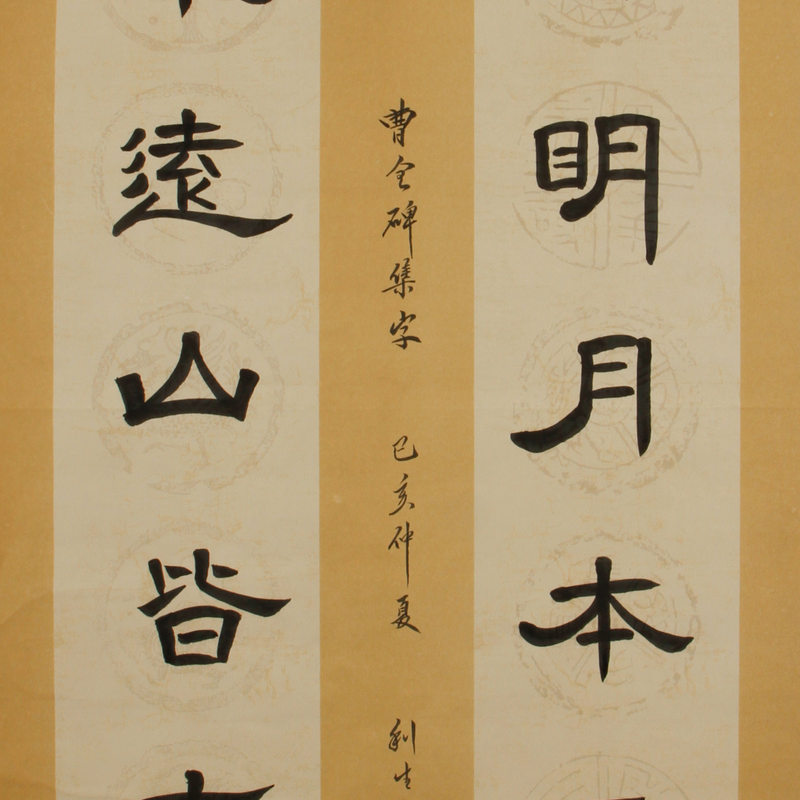 明月本
曹全碑集字 己亥仲夏 利生
遠山皆